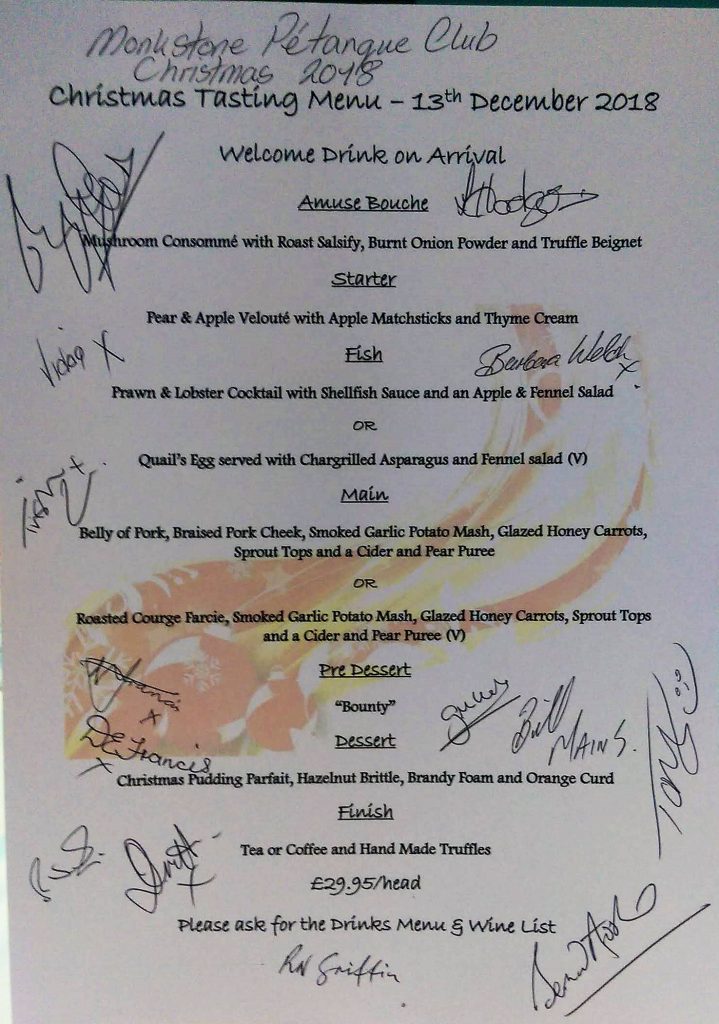 Monkstone Pétanque Club
Christmas 2018
Christmas Tasting Menu – 13th December 2018
Welcome Drink on Arrival
Amuse Bouche
Mushroom Consommé with Roast Salsify, Burnt Onion Powder and Truffle Beignet
Starter
Pear & Apple Velouté with Apple Matchsticks and Thyme Cream
Fish
Barbara Welch x
Prawn & Lobster Cocktail with Shellfish Sauce and an Apple & Fennel Salad
OR
Quail's Egg served with Chargrilled Asparagus and Fennel salad (V)
Main
Belly of Pork, Braised Pork Cheek, Smoked Garlic Potato Mash, Glazed Honey Carrots,
Sprout Tops and a Cider and Pear Puree
OR
Roasted Courge Farcie, Smoked Garlic Potato Mash, Glazed Honey Carrots, Sprout Tops
and a Cider and Pear Puree (V)
Pre Dessert
"Bounty"
Bill
MAINS.
Tony
Dessert
DE Francis
x
Christmas Pudding Parfait, Hazelnut Brittle, Brandy Foam and Orange Curd
Finish
Tea or Coffee and Hand Made Truffles
£29.95/head
Please ask for the Drinks Menu & Wine List
Griffin